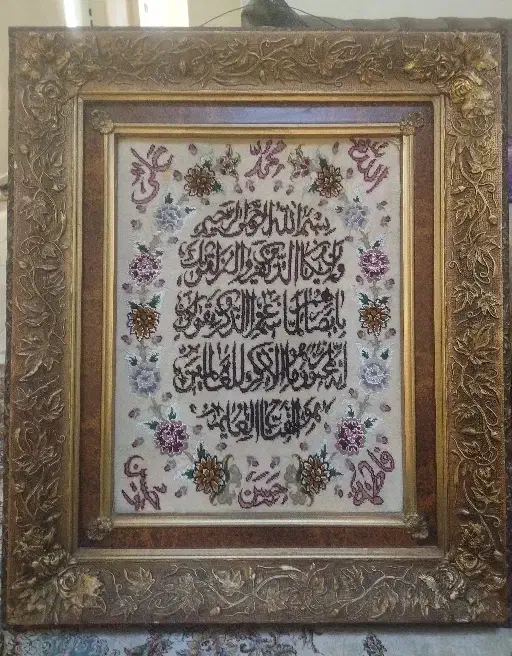 الله محمد علی
بسم الله الرحمن الرحیم
وان یکاد الذین کفروا لیزلقونک
بابصارهم لما سمعوا الذکر ویقولون
انه لمجنون وما هو الا ذکر للعالمین
هو الفتاح العلیم
فاطمه حسن حسین